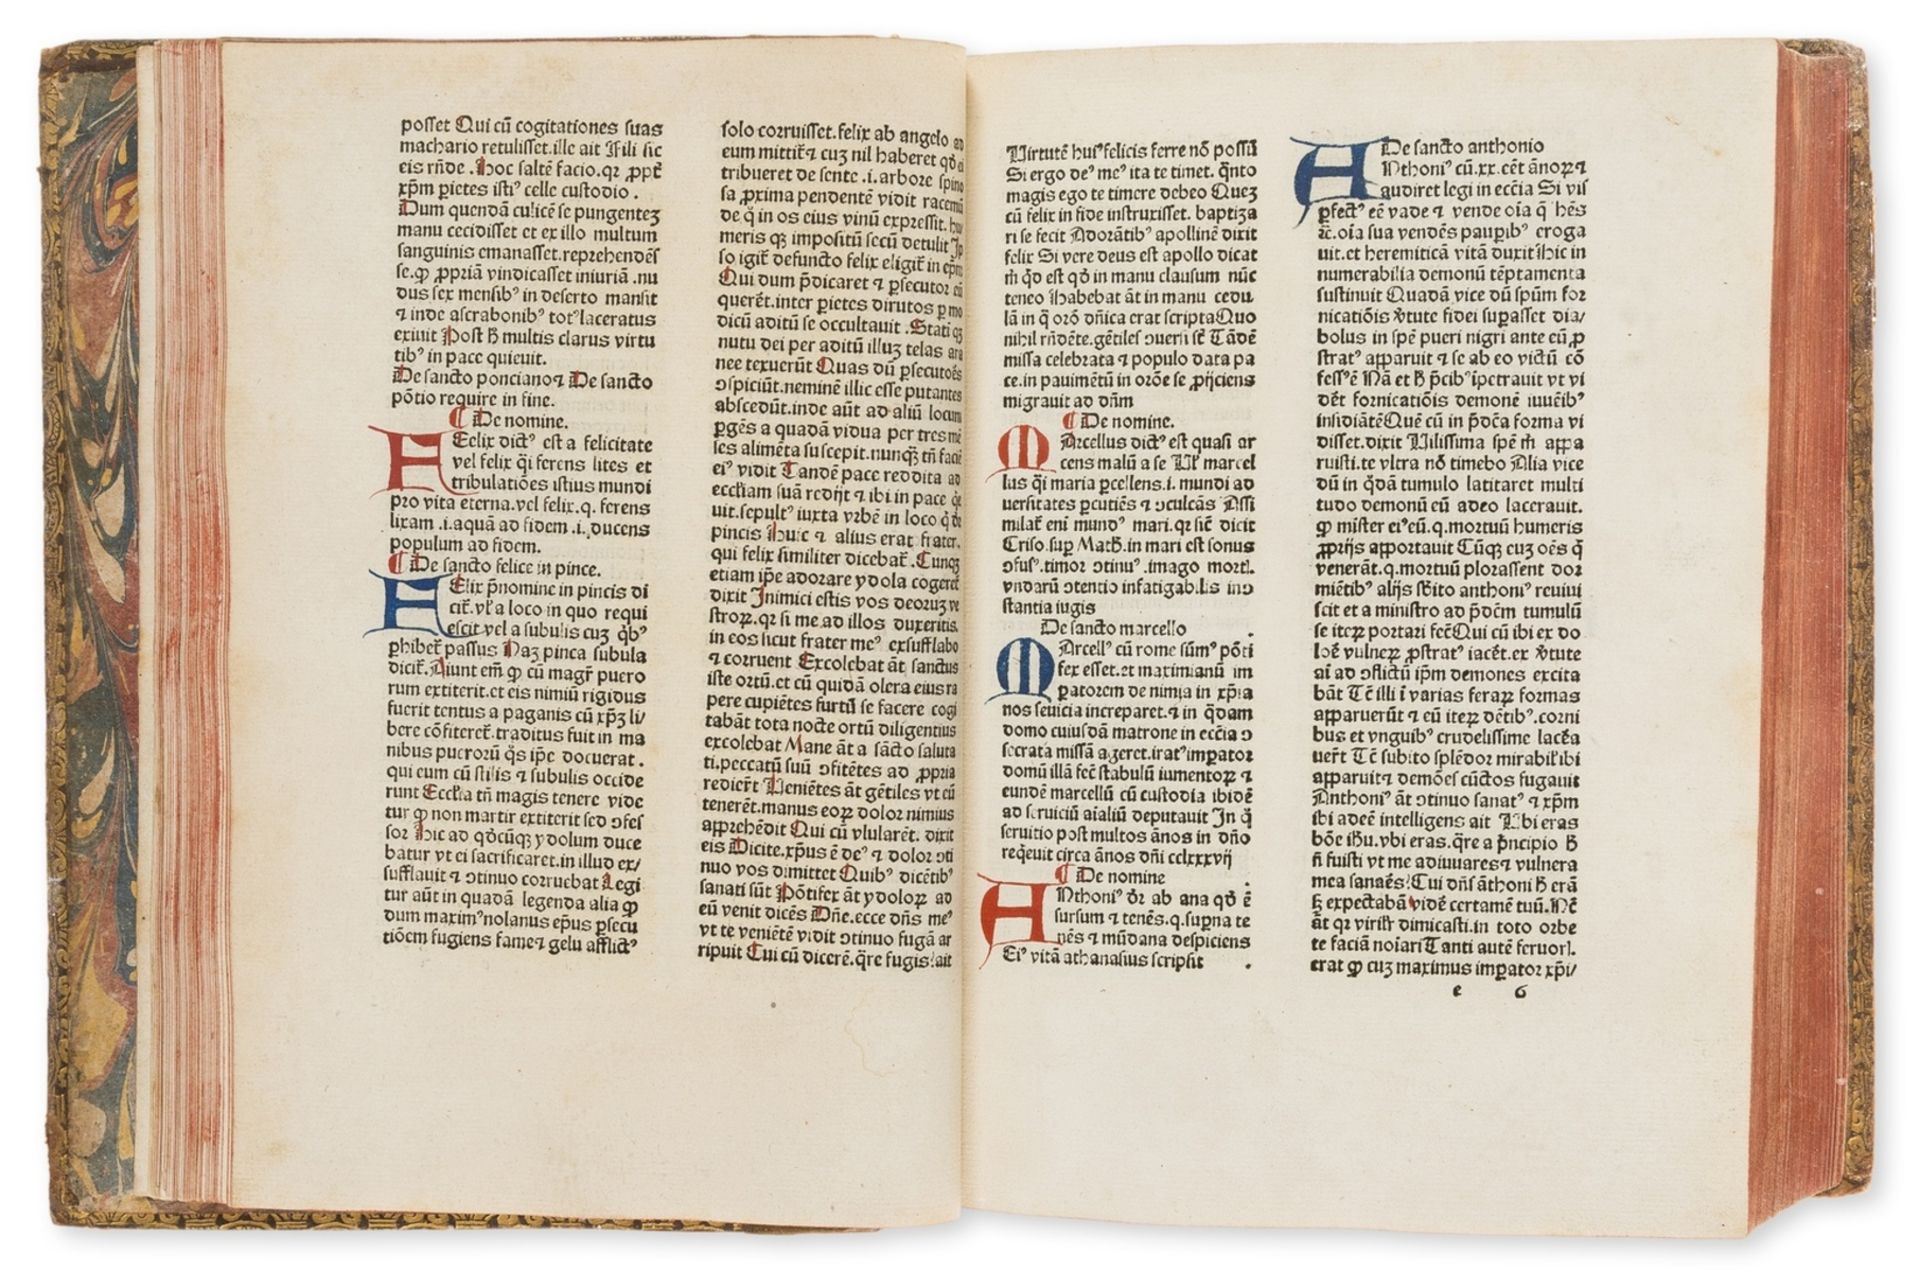 posset Qui cū cogitationes suas
machario retulisset.ille ait Fili sic
eis rñde .Hoc saltē facio.qꝛ ꝓpt̄
xp̄m ꝑietes istiꝰ celle custodio .
Dum quendā culicē se pungenteꝫ
manu cecidisset et ex illo multum
sanguinis emanasset.reprehendēs
se.ꝙ ꝓpriā vindicasset iniuriā.nu
dus sex mensibꝰ in deserto mansit
⁊ inde a scrabonibꝰ totꝰ laceratus
exiuit Post h̄ multis clarus virtu
tibꝰ in pace quieuit.
De sancto ponciano⁊ De sancto
pōtio require in fine.
¶ De nomine.
FElix dictꝰ est a felicitate
vel felix q̄i ferens lites et
tribulatiōes istius mundi
pro vita eterna.vel felix.q. ferens
lixam .i.aquā ad fidem .i. ducens
populum ad fidem.
¶ De sancto felice in pince.
FElix p̄nomine in pincis di
cit̄.vl̄ a loco in quo requi
escit vel a subulis cuꝫ q̄bꝰ
ꝑhibet̄ passus Naꝫ pinca subula
dicit̄.Aiunt em̄ ꝙ cū magr̄ puero
rum extiterit.et eis nimiū rigidus
fuerit tentus a paganis cū xp̄ꝫ li/
bere cōfiteret̄.traditus fuit in ma
nibus puerorū q̄s ip̄e docuerat .
qui eum cū stilis ⁊ subulis occide
runt Eccl̄ia tn̄ magis tenere vide
tur ꝙ non martir extiterit sed ꝯfes
sor Hic ad q̄dcūqꝫ ydolum duce
batur vt ei sacrificaret.in illud ex/
sufflauit ⁊ ꝯtinuo corruebat Legi
tur aūt in quadā legenda alia ꝙ
dum maximꝰ nolanus ep̄us ꝑsecu
tiōem fugiens fame⁊ gelu afflictꝰ
solo corruisset.felix ab angelo ad
eum mittit̄ ⁊ cuꝫ nil haberet qd̄ ei
tribueret de sente .i.arbore spino
sa ꝓxima pendentē vidit racemū
de q̄ in os eius vinū expressit. hu
meris qꝫ impositū secū detulit Ip
so igit̄ defuncto felix eligit̄ in ep̄m
Qui dum p̄dicaret ⁊ ꝑsecutor eū
querēt.inter ꝑietes dirutos ꝑ mo
dicū aditū se occultauit .Stati qꝫ
nutu dei per aditū illuꝫ telas ara
nee texuerūt Quas dū ꝑsecutoēs
ꝯspiciūt.neminē illic esse putantes
abscedūt.inde aūt ad aliū locum
ꝑgēs a quadā vidua per tres mē
ses alimēta suscepit.nunqꝫ tn̄ faciē
eiꝰ vidit Tandē pace reddita ad
eccl̄iam suā redijt ⁊ ibi in pace q̄e
uit.sepultꝰ iuxta vrbē in loco q̄ d̄r
pincis Huic ⁊ alius erat frater.
qui felix similiter dicebat̄ .Cunqꝫ
etiam ip̄e adorare ydola cogeret̄
dixit Inimici estis vos deoruꝫ ve
stroꝝ.qꝛ si me ad illos duxeritis
in eos sicut frater meꝰ exsufflabo
⁊ corruent Excolebat āt sanctus
iste ortū.et cū quidā olera eius ra
pere cupiētes furtū se facere cogi
tabāt tota nocte ortū diligentius
excolebat Mane āt a sācto saluta
ti.peccatū suū ꝯfitētes ad ꝓpria
redier̄t Veniētes āt gētiles vt eū
tenerēt.manus eoꝝ dolor nimius
apprehēdit Qui cū vlularēt. dixit
eis Dicite.xp̄us ē deꝰ ⁊ dolor ꝯti
nuo vos dimittet Quibꝰ dicētibꝰ
sanati sūt Pōtifex āt ydoloꝝ ad
eū venit dicēs Dn̄e.ecce dn̄s meꝰ
vt te veniētē vidit ꝯtinuo fugā ar
ripuit Cui cū dicerē.q̄re fugis!ait
Virtutē huiꝰ felicis ferre nō possū
Si ergo deꝰ meꝰ ita te timet. q̄nto
magis ego te timere debeo Queꝫ
cū felix in fide instruxisset. baptiza
ri se fecit Adorātibꝰ apollinē dixit
felix Si vere deus est apollo dicat
m̄ qd̄ est qd̄ in manu clausum nūc
teneo Habebat āt in manu cedu
lā in q̄ orō dn̄ica erat scripta Quo
nihil rn̄dēte.gētiles ꝯuersi sūt Tādē
missa celebrata ⁊ populo data pa
ce.in pauimētū in orōe se ꝓijciens
migrauit ad dn̄m
¶ De nomine.
MArcellus dictꝰ est quasi ar
cens malū a se Vl̄ marcel
lus q̄i maria ꝑcellens.i. mundi ad
uersitates ꝑcutiēs ⁊ ꝯculcās Assi
milat̄ eni mundꝰ mari.qꝛ sic̄ dicit
Criso.suꝑ Math̄.in mari est sonus
ꝯfusꝰ.timor ꝯtinuꝰ.imago mortꝭ.
vndarū ꝯtentio infatigabilis inꝯ
stantia iugis
De sancto marcello
MArcellꝰ cū rome sūmꝰ pōti
fex esset.et maximianū im
ꝑatorem de nimia in xp̄ia
nos seuicia increparet.⁊ in q̄dam
domo cuiusdā matrone in eccīa ꝯ
secrata missā ageret.iratꝰ imꝑator
domū illā fec̄ stabulū iumentoꝝ ⁊
eundē marcellū cū custodia ibidē
ad seruiciū aīaliū deputauit In q̄
seruitio post multos ānos in dn̄o
reqeuit circa ānos dn̄i cclxxxvij
¶ De nomine
ANthoniꝰ dr̄ ab ana qd̄ ē
sursum ⁊ tenēs.q.suꝑna te
nēs ⁊ mūdana despiciens
Eiꝰ vitā athanasius scripsit
De sancto anthonio
ANthoniꝰ cū.xx.eēt ānoꝝ⁊
audiret legi in eccīa Si vis
ꝑfectꝰ eē vade ⁊ vende oīa q̄ hēs
⁊c̄.oīa sua vendēs pauꝑibꝰ eroga
uit.et heremiticā vitā duxit Hic in
numerabilia demonū tēptamenta
sustinuit Quadā vice dū sp̄um for
nicatiōis v̄tute fidei suꝑasset dia/
bolus in spē pueri nigri ante eū ꝓ
stratꝰ apparuit ⁊ se ab eo victū cō
fessꝰē Nā et h̄ p̄cibꝰ īpetrauit vt vi
dēt fornicatiōis demonē iuuēibꝰ
insidiātē Quē cū in p̄dc̄a forma vi
disset.dixit Vilissima spē m̄ appa
ruisti.te vltra nō timebo Alia vice
dū in q̄dā tumulo latitaret multi
tudo demonū eū adeo lacerauit.
ꝙ mister eiꝰ eū.q.mortuū humeris
ꝓprijs apportauit Cūqꝫ cuꝫ oēs q̄
venerāt.q.mortuū plorassent dor
miētibꝰ alijs sb̄ito anthoniꝰ reuiui
scit et a ministro ad p̄dēm tumulū
se iteꝝ portari fec̄ Qui cū ibi ex do
loē vulneꝝ ꝓstratꝰ iacēt.ex v̄tute
aī ad ꝯflictū ip̄m demones excita
bāt Tc̄ illi ī varias feraꝝ formas
apparuerūt ⁊ eū iteꝝ dētibꝰ.corni
bus et vnguibꝰ crudelissime lacēa
uer̄t Tc̄ subito splēdor mirabilꝭ ibi
apparuit⁊ demōes cūctos fugauit
Anthoniꝰ āt ꝯtinuo sanatꝰ ⁊ xp̄m
ibi adeē intelligens ait Vbi eras
bōe ih̄u.vbi eras.q̄re a p̄ncipio h̄
n̄ fuisti vt me adiuuares⁊ vulnera
mea sanaēs!Cui dn̄s āthoni h̄ erā
ß expectabā videē certamē tuū.Nc̄
āt qꝛ viriłr dimicasti.in toto orbe
te faciā noīari Tanti autē feruorꝭ.
erat ꝙ cuꝫ maximus imꝑator xp̄i/
e 6